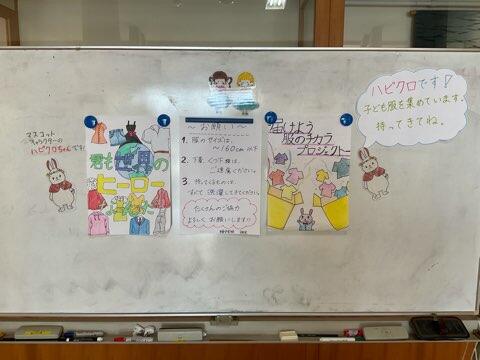 マスコット
キャラクターの
ハピクロちゃんです!
君も世界の
ヒーロー
〜お願い〜
1. 服のサイズは、
〜160cm以下
2. 下着、くつ下類は、
ご遠慮ください。
3.
すべて洗濯してきてください。
たくさんのご協力
よろしくお願いします!!
届けよう
服のチカラ
プロジェクト
ハピクロです!
子ども服を集めています。
持ってきてね。